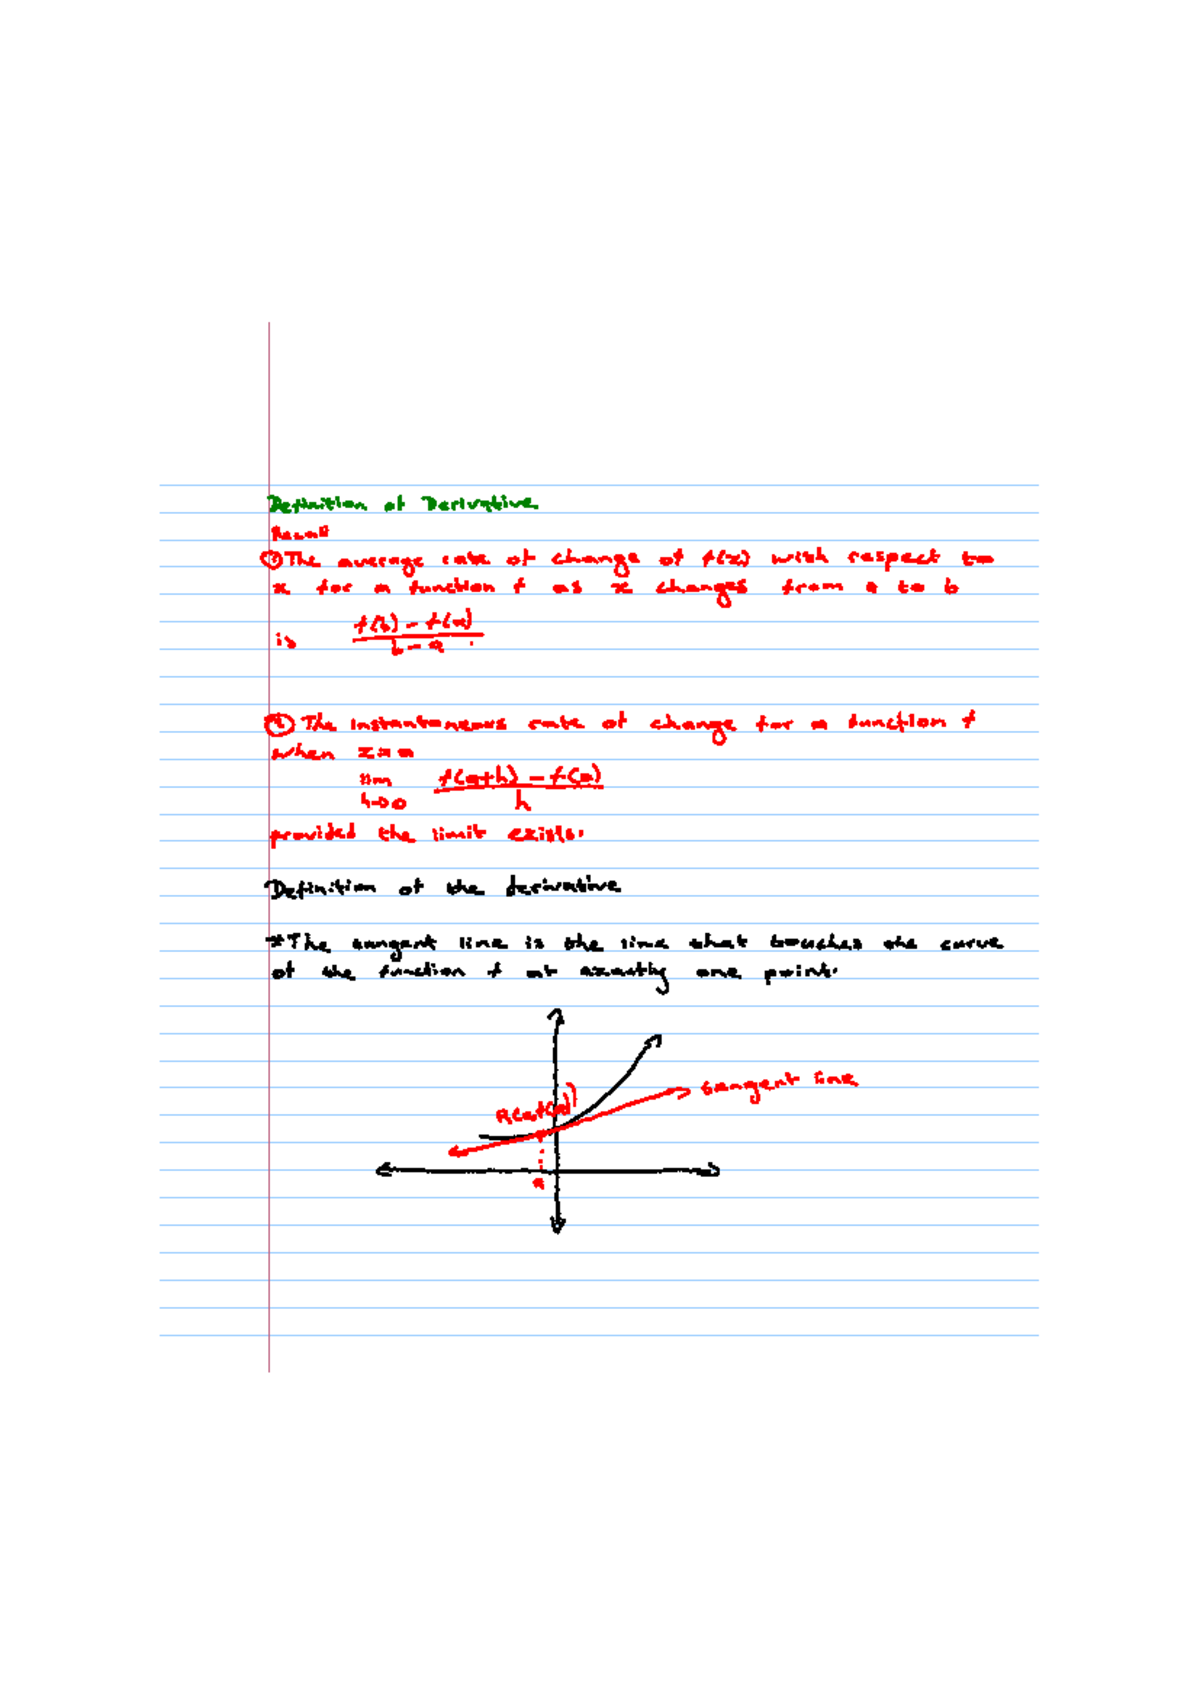 Definition of Derivative
Recall
① The average rate of change of f(x) with respect to
x for a function f as x changes from a to b
is f(b) - f(a) / b - a
② The instantaneous rate of change for a function f
when x = a
lim h→0 f(a+h) - f(a) / h
provided the limit exists.
Definition of the derivative
* The tangent line is the line that touches the curve
of the function f at exactly one point.
tangent line
R(a,f(a))
a